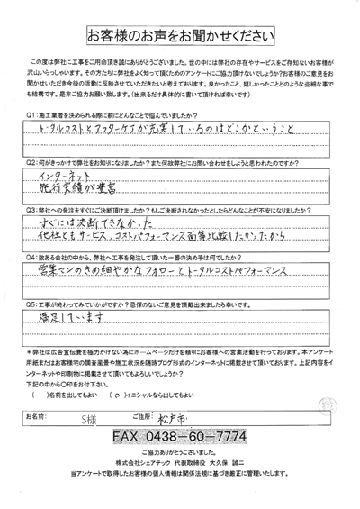 お客様のお声をお聞かせください
この度は弊社に工事をご用命頂き誠にありがとうございました。世の中には弊社の存在やサービスをご存知ないお客様が
沢山いらっしゃいます。その方たちに弊社をよく知って頂くためのアンケートにご協力頂けないでしょうか?お客様のご意見をお
聞かせいただき会社の活動に反映させていただきたいと考えております。良かったこと、嬉しかったことどのような些細な事で
も結構です。是非ご協力お願い致します。(出来るだけ具体的に書いて頂ければ幸いです)
Q1:施工業者を決められる際に前にどんなことで悩んでいましたか?
トータルコストとアフターケアが充実しているのはどこかということ
Q2:何がきっかけで弊社をお知りになりましたか?また何故弊社にお問い合わせをしようと思われたのですか?
インターネット
施行実績が豊富
Q3:弊社への発注をすぐにご決断頂けましたか?もしご決断されなかったとしたらどんなことが不安になりましたか?
すぐには決断できなかった
他社ともサービス、コストパフォーマンス面等比較したかったから
Q4:数ある会社の中から、弊社へ工事を発注して頂いた一番の決め手は何でしたか?
営業マンのきめ細やかなフォローとトータルコストパフォーマンス
Q5:工事が終わってみていかがですか?忌憚のないご意見を頂戴出来ましたら幸いです。
満足しています
*弊社は広告宣伝費を極力かけない為にホームページだけを頼りにお客様への営業活動を行っております。本アンケート
用紙またはお客様宅の調査風景や施工状況を随時ブログ形式のインターネットに掲載させて頂いております。上記内容をイ
ンターネットや印刷物に掲載させて頂いてもよろしいでしょうか?
下記の中から〇印をお付け下さい。
( )名前を出してもよい (〇)イニシャルならば出してもよい
お名前: S様 ご住所: 松戸市
FAX 0438-60-7774
ご協力ありがとうございました。
株式会社シェアテック 代表取締役 大久保 誠二
当アンケートで取得されたお客様の個人情報は関係法規に基づき厳正に管理いたします。